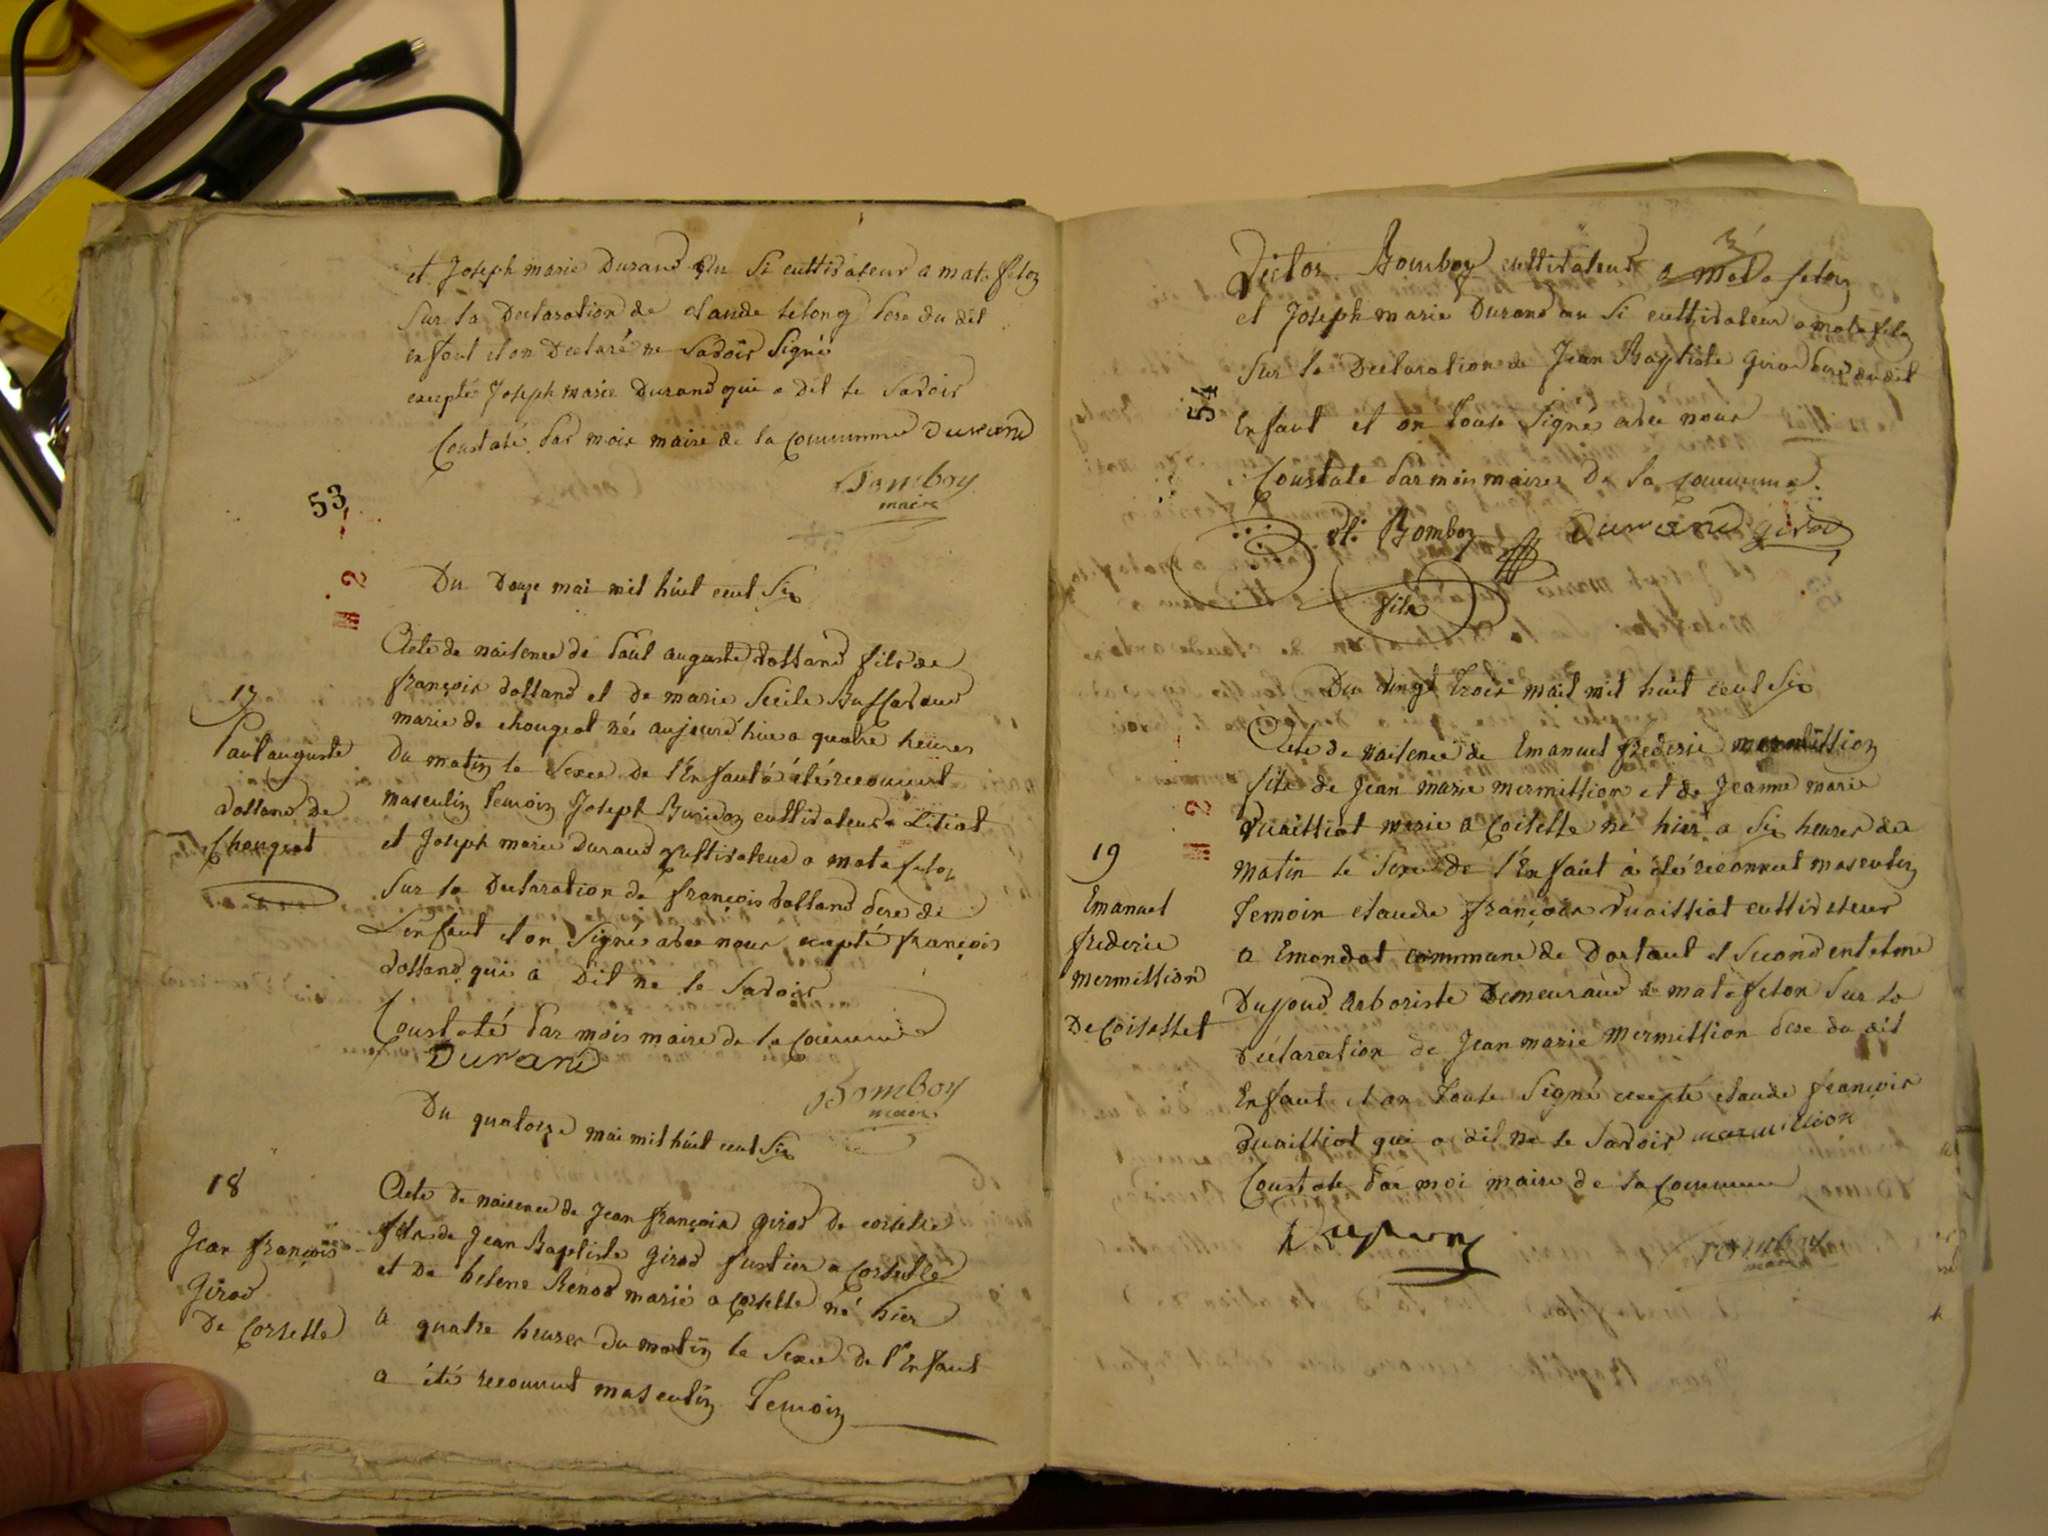 et Joseph marie Durand au si cultivateur a matafelon
sur la Declaration de claude lelong pere du dit
enfant et on Declaré ne savoir signé
excepté Joseph marie Durand qui a dit le savoir
Constaté par mois maire de la commune Durand
Bomboy
maire
53
2
Du Douze mai mil huit cent six
17
Paul auguste
dolland de
Chougeat
Acte de naisence de paul auguste dolland fils de
françois dolland et de marie Secile Buffavand
marie de chougeat né aujourd'hui a quatre heures
du matin le sexe de l'Enfant a été reconnut
masculin temoin Joseph Buridon cultivateur a Litiat
et Joseph marie Durand cultivateur a matafelon
sur la Declaration de françois dolland pere de
L'enfant et on signé avec nous excepté françois
dolland qui a Dit ne le savoir
Constaté par mois maire de la commune
Durand
Bomboy
maire
Du quatorze mai mil huit cent six
18
Jean françois
Girod
De Corselle
Acte de naisence de Jean françois Girod de corselle
fils de Jean Baptiste Girod fustier a Corselle
et de helene Benod marié a Corselle né hier
a quatre heures du matin le sexe de l'Enfant
a été reconnut masculin Temoin
Victor Bomboy cultivateur a Matafelon
et Joseph marie Durand au si cultivateur a matafelon
sur la Declaration de Jean Baptiste Girod pere du dit
54
Enfant et on toute signé avec nous
Constate par mois maire de la commune.
Vi. Bomboy Durand girod
fils
Du vingt trois mait mil huit cent six
2
19
Emanuel
frederic
mermillion
De Coiselet
Acte de naisence de Emanuel frederic mermillion
fils de Jean marie mermillion et de Jeanne marie
Vuailliat marie a Coiselle né hier a six heures du
matin le sexe de l'Enfant à été reconnut masculin
Temoin claude françois Vuailliat cultivateur
a Emondat commune de Dortant et second entelme
Dupond arboriste Demeurand a matafelon sur la
Déclaration de Jean marie Mermillion pere du dit
Enfant et on toute signé excepté claude françois
Vuailliat qui a dit ne le savoir mermillion
Constate par moi maire de la commune
Dupon
Bomboy
maire